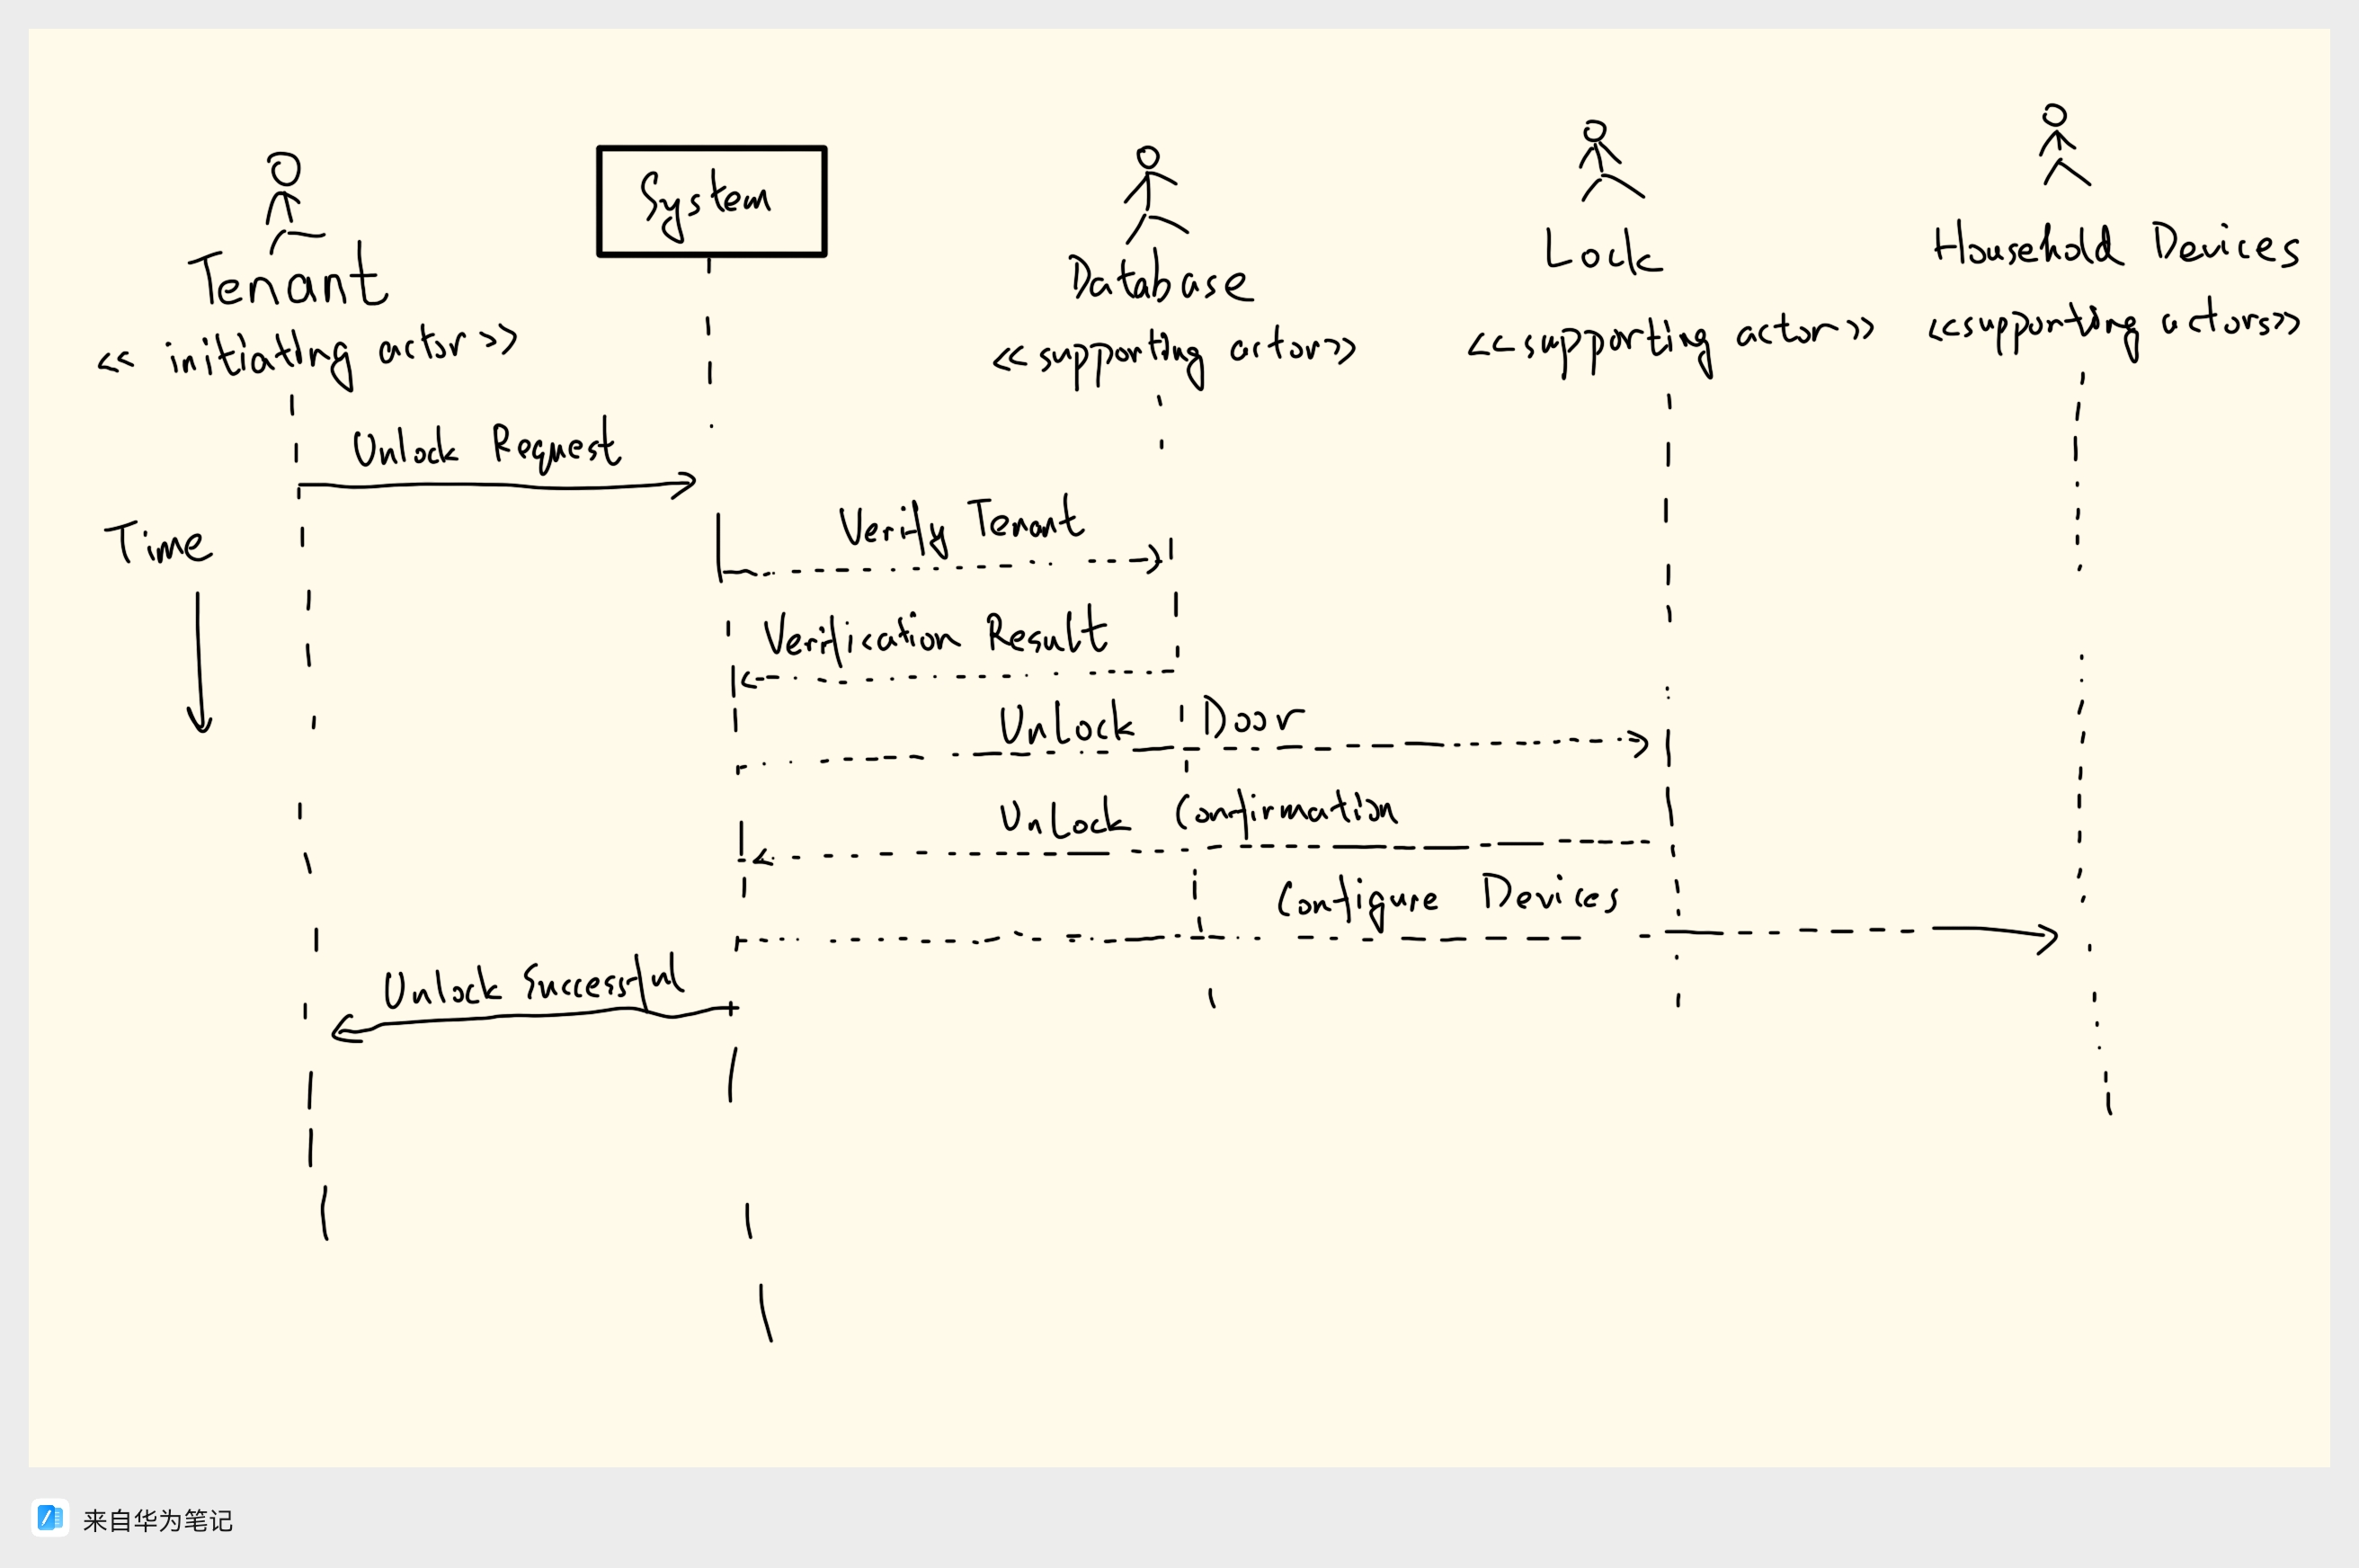 Tenant
<< initiating actor >>
System
Database
<< supporting actor >>
Lock
<< supporting actor >>
Household Devices
<<supporting actors>>
Unlock Request
Time
Verify Tenant
Verification Result
Unlock Door
Unlock Confirmation
Configure Devices
Unlock Successful
来自华为笔记